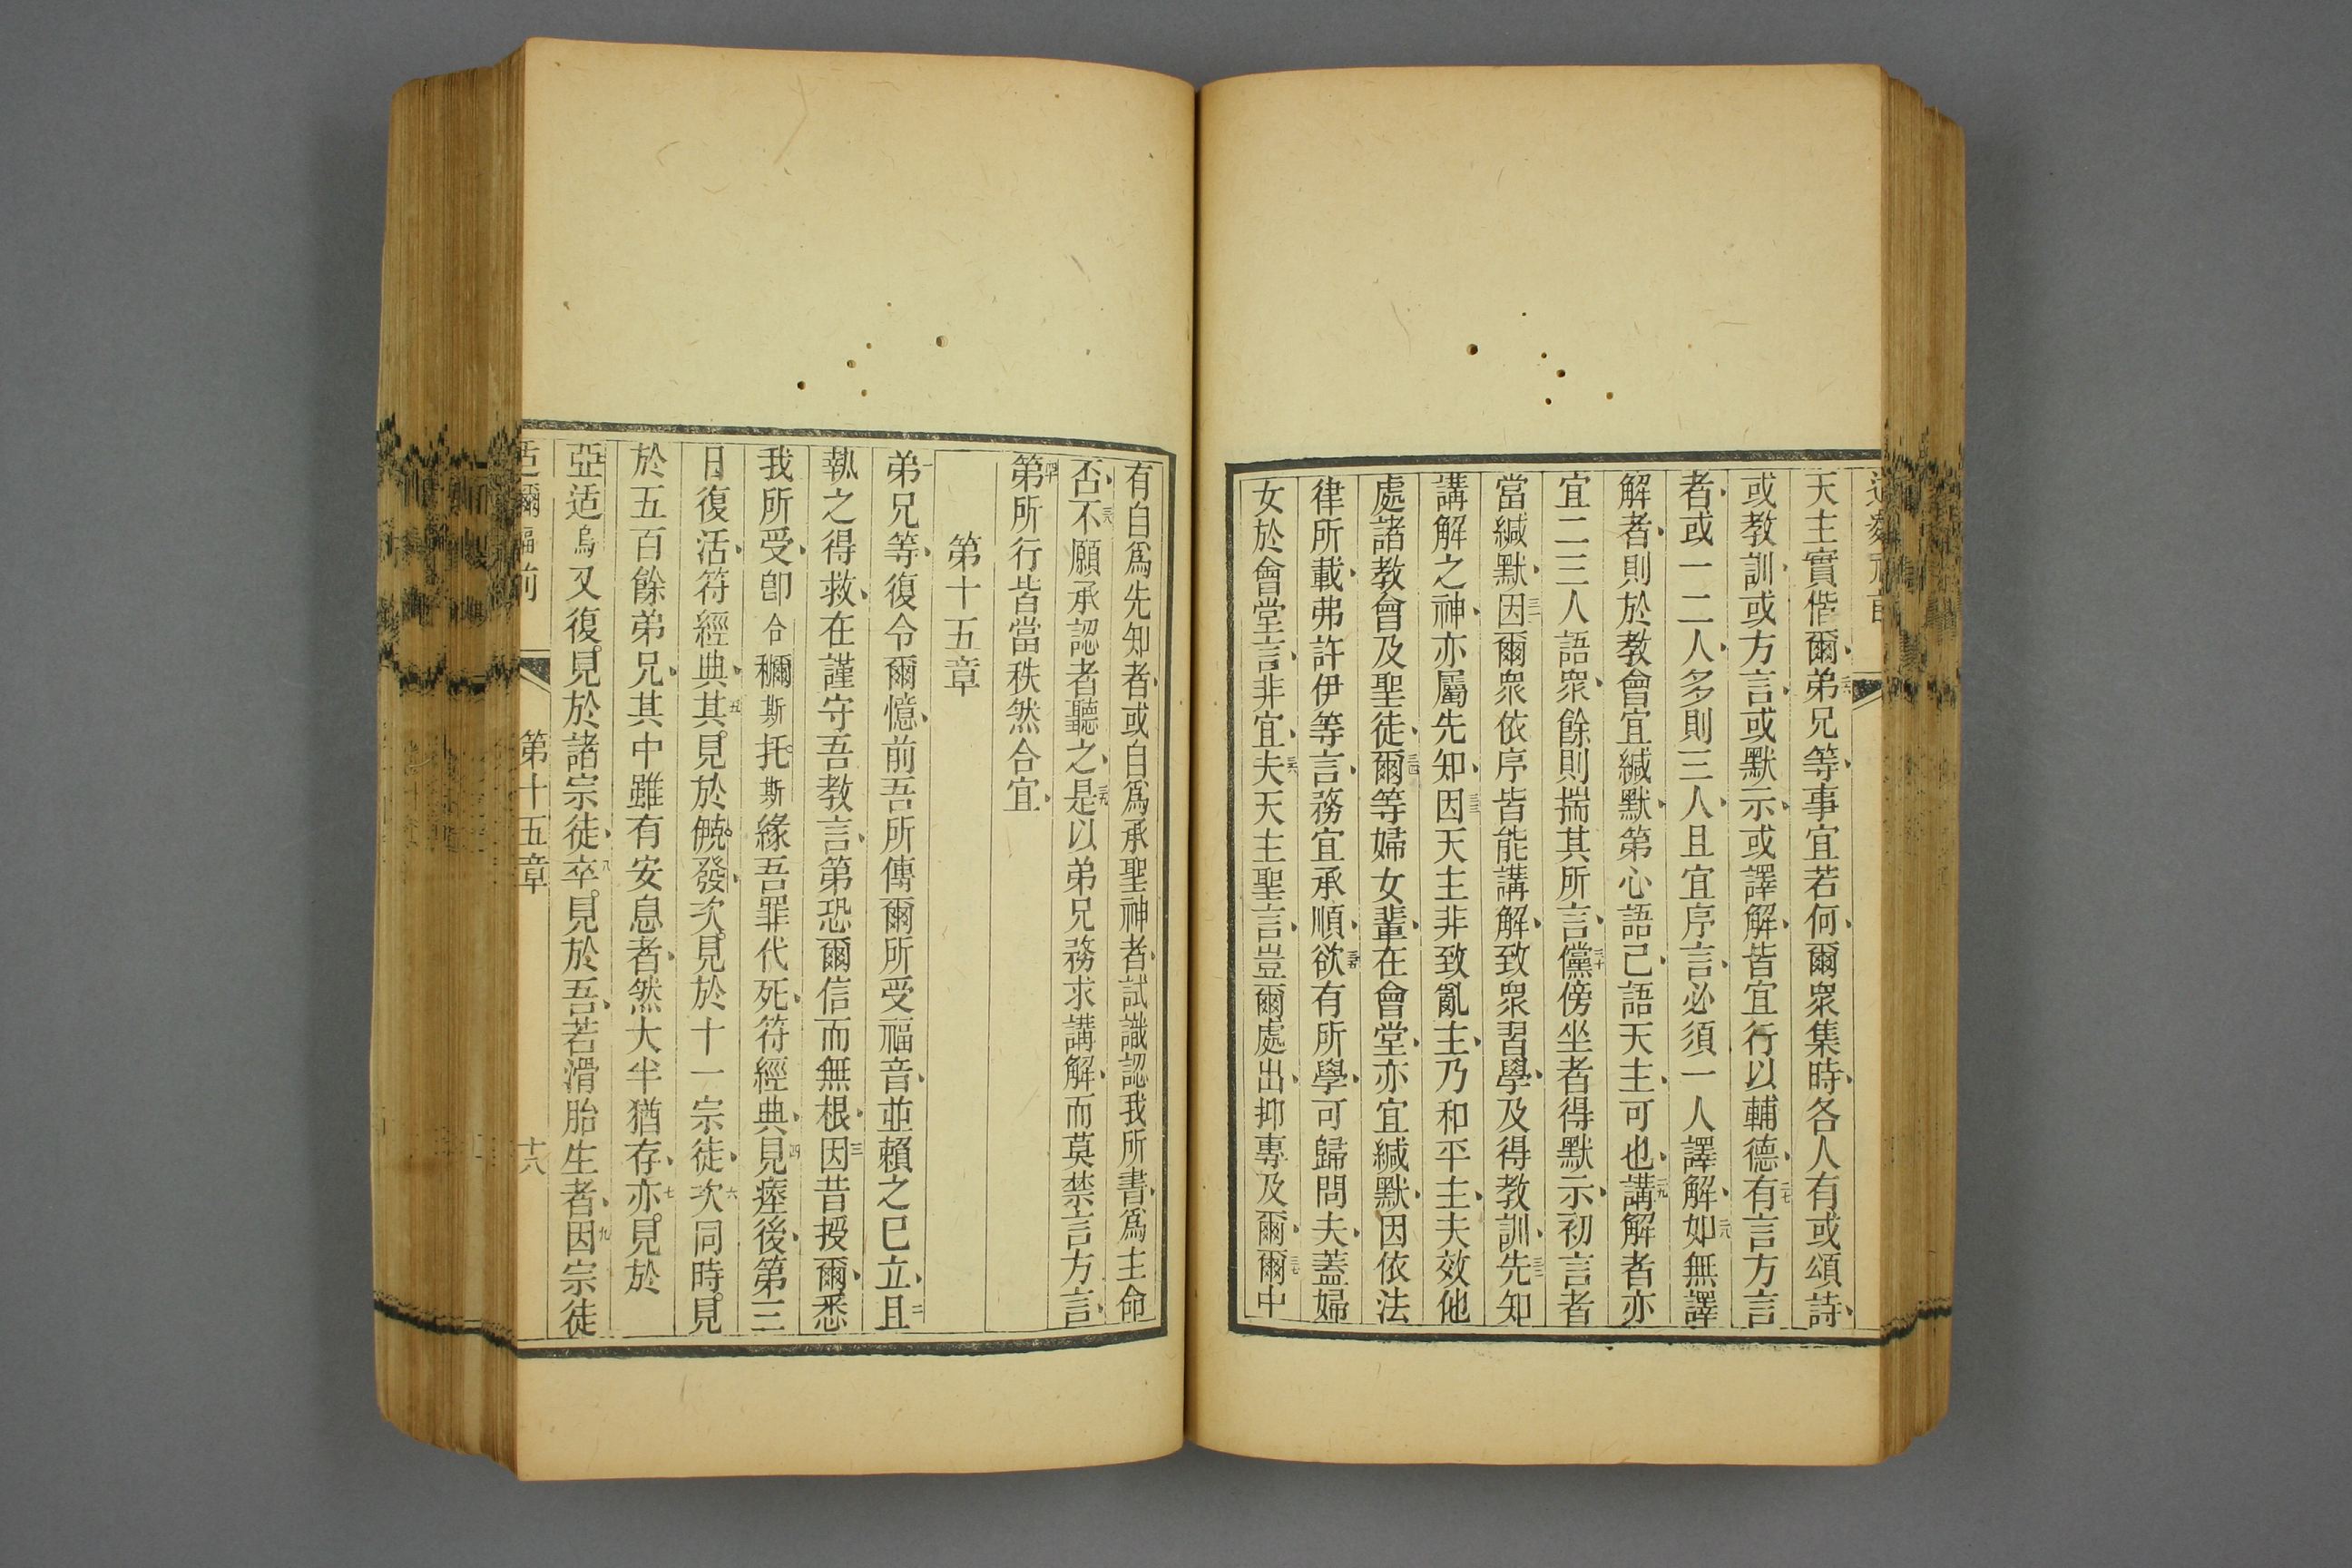 天主實偕爾弟兄等事宜若何爾眾集時各人有或頌詩
或教訓或方言或默示或譯解皆宜行以輔德有言方言
者或一二人多則三人且宜序言必須一人譯解如無譯
解者則於教會宜緘默第心語己語天主可也講解者亦
宜二三人語眾餘則揣其所言儻傍坐者得默示初言者
當緘默因爾眾依序皆能講解致眾習學及得教訓先知
講解之神亦屬先知因天主非致亂主乃和平主夫效他
處諸教會及聖徒爾等婦女輩在會堂亦宜緘默因依法
律所載弗許伊等言務宜承順欲有所學可歸問夫蓋婦
女於會堂言非宜夫天主聖言豈爾處出抑專及爾爾中
有自爲先知者或自爲承聖神者試識認我所書爲主命
否不願承認者聽之是以弟兄務求講解而莫禁言方言
第所行皆當秩然合宜
第十五章
弟兄等復令爾憶前吾所傳爾所受福音並賴之已立且
執之得救在謹守吾教言第恐爾信而無根因昔授爾悉
我所受卽合穪斯托斯緣吾罪代死符經典見瘞後第三
日復活符經典其見於僥發次見於十一宗徒次同時見
於五百餘弟兄其中雖有安息者然大半猶存亦見於
亞适烏又復見於諸宗徒卒見於吾若滑胎生者因宗徒
适爾福前 第十五章 十八